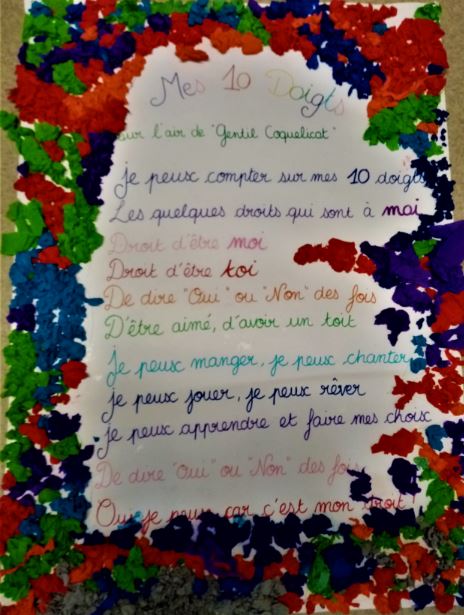 Mes 10 Doigts
sur l'air de "Gentil Coquelicat"
je peux compter sur mes 10 doigts
Les quelques droits qui sont à moi
Droit d'être moi
Droit d'être toi
De dire "Oui" ou "Non" des fois
D'être aimé, d'avoir un toit
Je peux manger, je peux chanter
je peux jouer, je peux rêver
je peux apprendre et faire mes choix
De dire "Oui" ou "Non" des fois
Oui je peux car c'est mon droit !